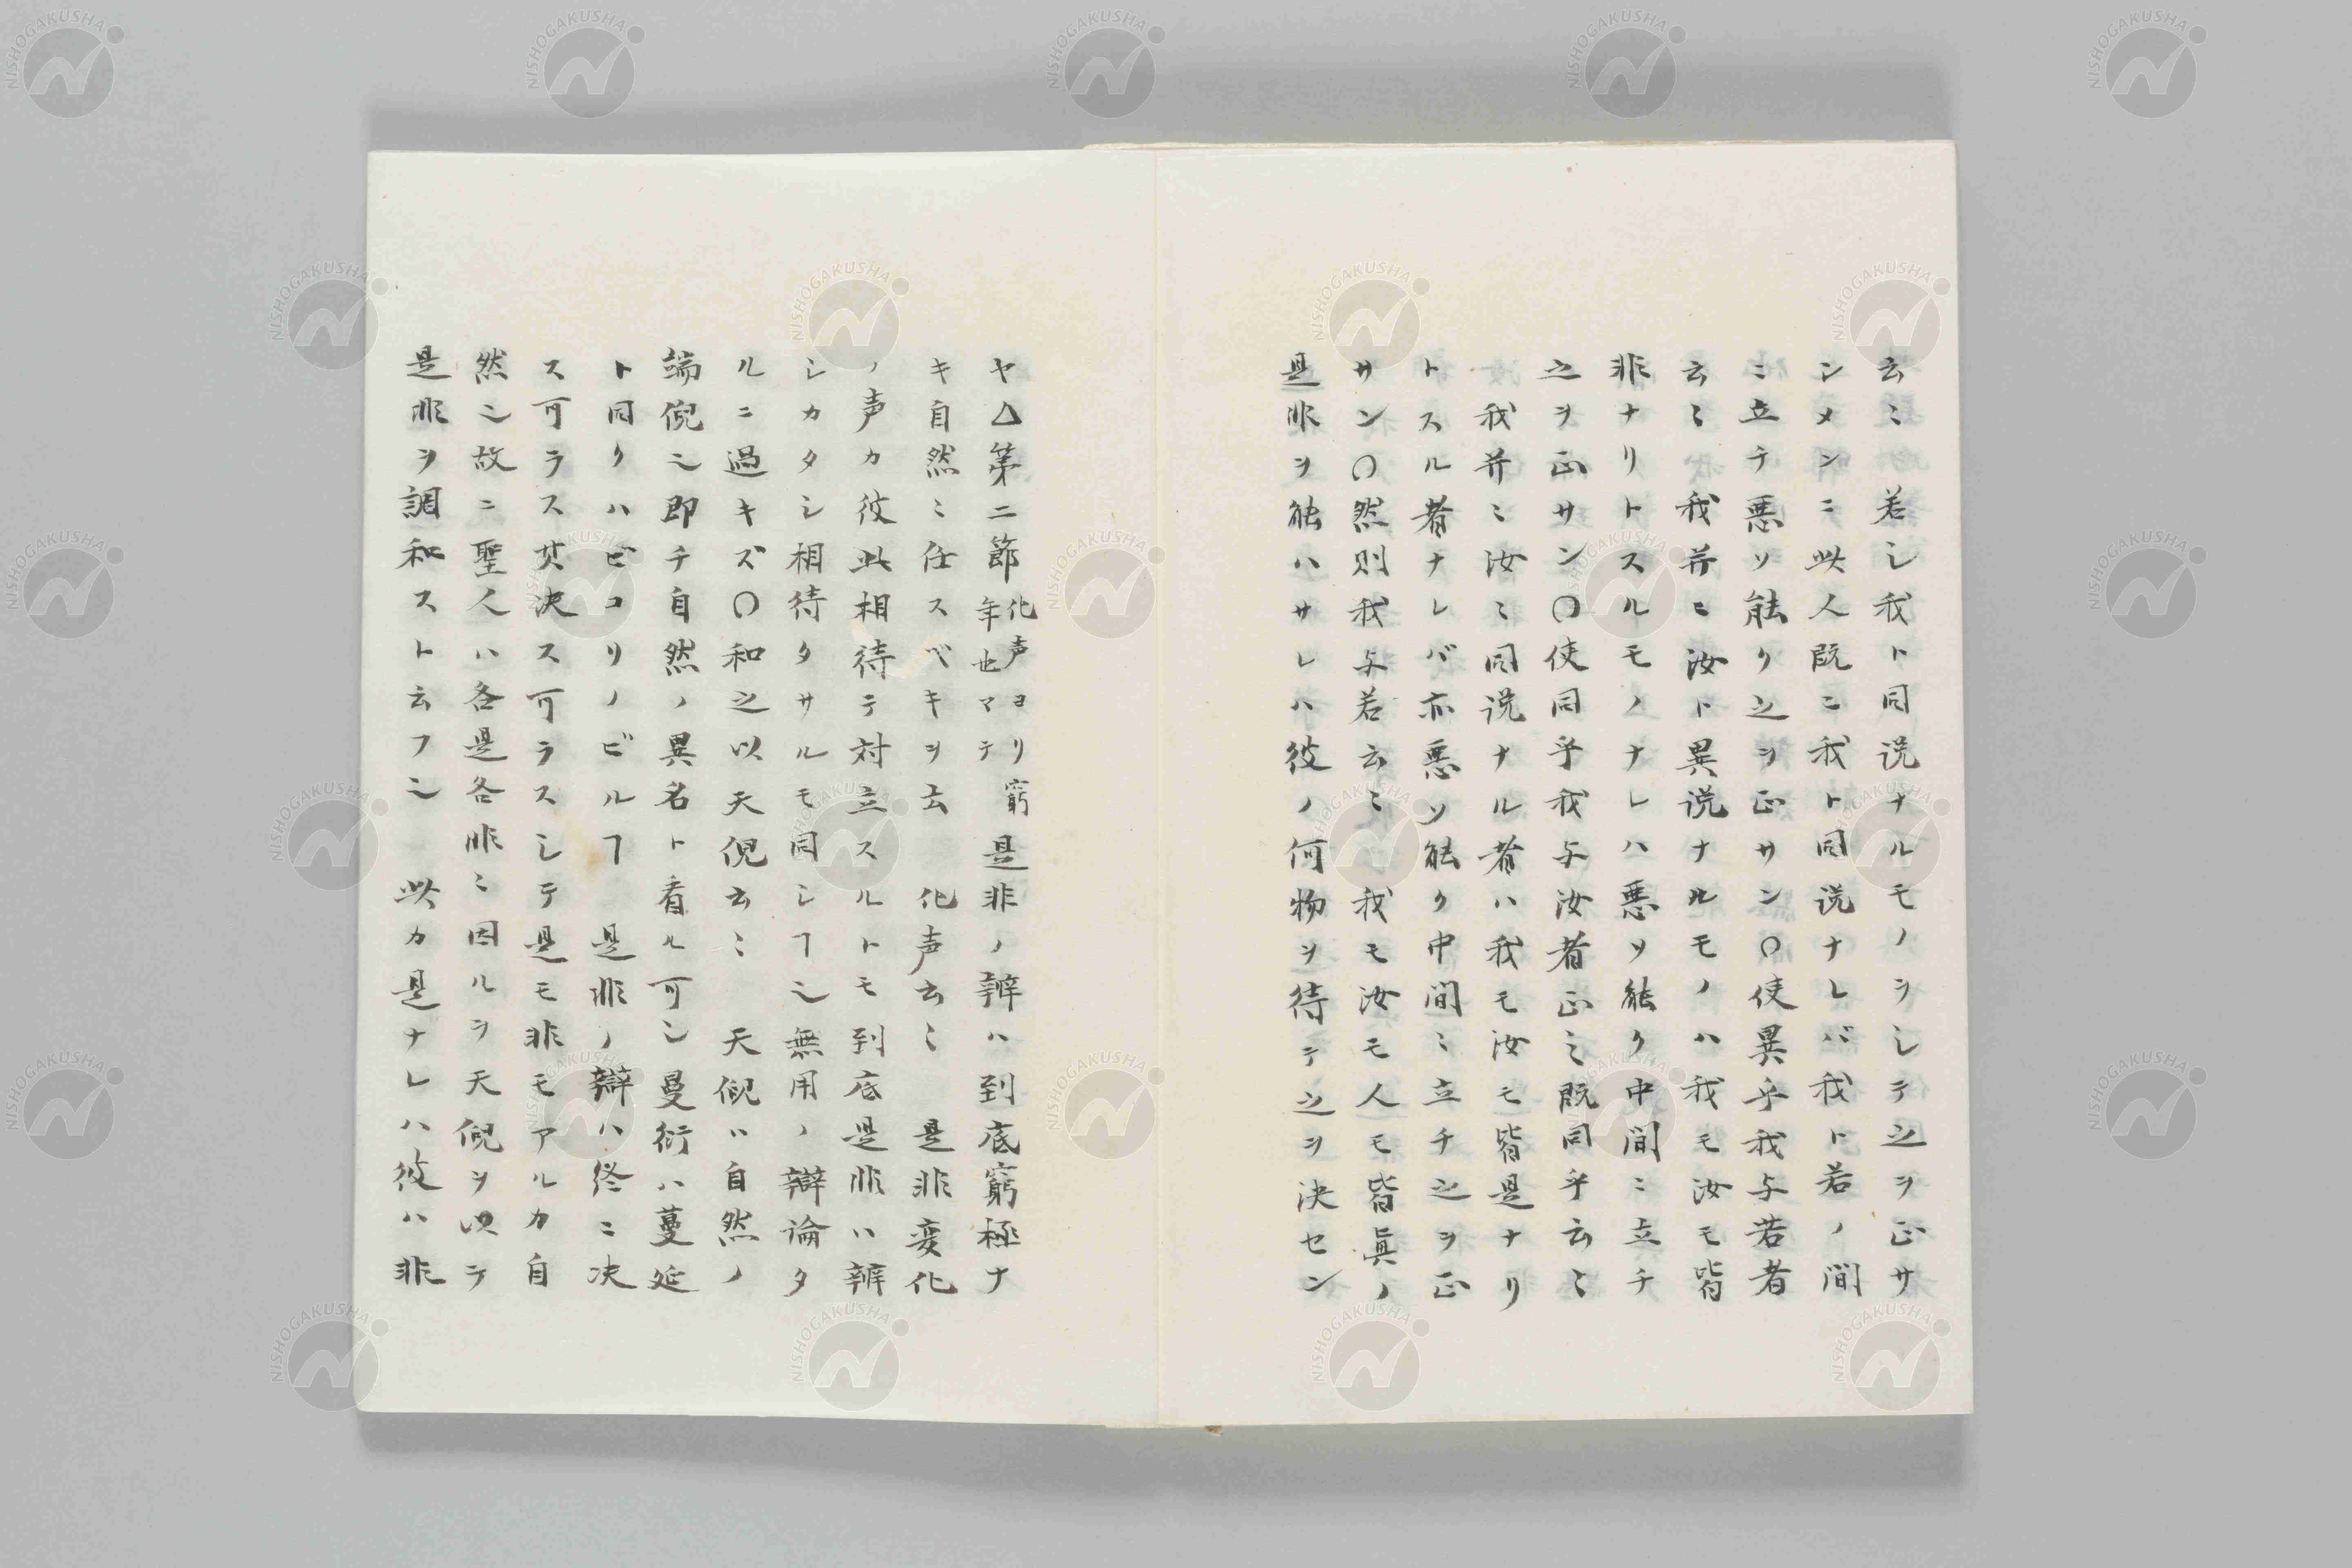 云ミ若シ我ト同説ナルモノヲシテ之ヲ正サ
ンメンニ此人既ニ我ト同説ナレバ我ト若ノ間
ニ立テ悪ソ能ク之ヲ正サン〇使異乎我与若者
云ミ我并ニ汝ト異説ナルモノハ我モ汝モ皆
非ナリトスルモノナレハ悪ソ能ク中間ニ立チ
之ヲ正サン〇使同乎我与汝者正之既同乎云ミ
我并ミ汝ミ同説ナル者ハ我モ汝モ皆是ナリ
トスル者ナレバ亦悪ソ能ク中間ミ立チ之ヲ正
サン〇然則我与若云ミ我モ汝モ人モ皆眞ノ
是非ヲ能ハサレハ彼ノ何物ヲ待テ之ヲ決セン
ヤ△第二節化声ヨリ窮年也マテ是非ノ辨ハ到底窮極ナ
キ自然ミ任スベキヲ云 化声云ミ 是非変化
ノ声カ彼此相待テ対立スルトモ到底是非ハ辨
シカタシ相待タサルモ同シヿ也無用ノ辯論タ
ルニ過キズ〇和之以天倪云ミ 天倪ハ自然ノ
端倪也即チ自然ノ異名ト看ル可シ曼衍ハ蔓延
ト同クハビコリノビルヿ 是非ノ辯ハ終ニ決
ス可ラス其決ス可ラスシテ是モ非モアルカ自
然也故ニ聖人ハ各是各非ミ因ルヲ天倪ヲ以テ
是非ヲ調和スト云フ也 此カ是ナレハ彼ハ非
NISHOGAKUSHA